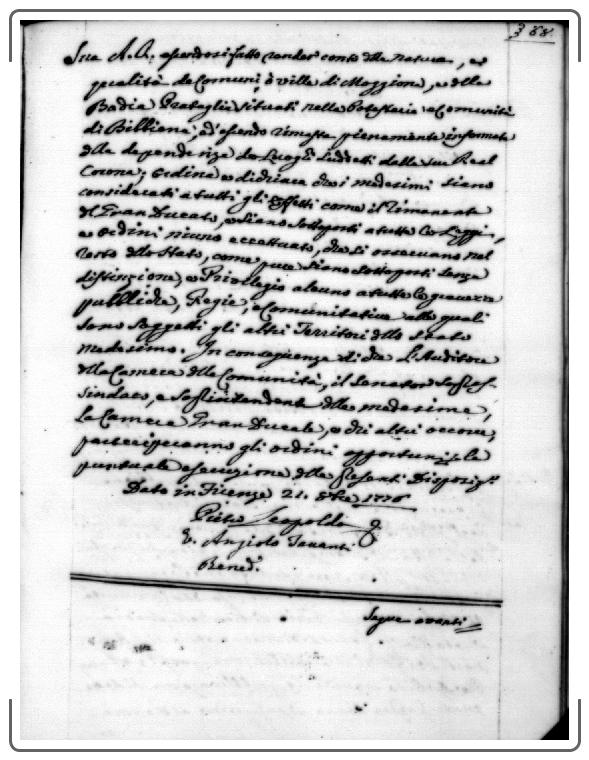 388.
Sua A. R. essendosi fatto render conto della natura, e
qualità de Comuni, o ville di Moggiona, e della
Badia Prataglia situati nella Potesteria e Comunità
di Bibbiena, ed essendo rimasta pienamente informata
della dependenza de Luoghi suddetti dalla sua Real
Corona; Ordina e dichiara che i medesimi siano
considerati a tutti gli effetti come il rimanente
del Gran Ducato, e siano sottoposti a tutte le Leggi,
e ordini niuno eccettuato, che si osservano nel
resto dello Stato, come pure siano sottoposti senza
distinzione, e Privilegio alcuno a tutte le gravezze
pubbliche, Regie, e Comunitative alle quali
sono soggetti gli altri Territori dello Stato
medesimo. In conseguenza di che L'Auditore
della Camera delle Comunità, il Senator
Sindaco, e Soprintendente delle medesime,
la Camera Gran Ducale, e chi altri occorre,
parteciperanno gli ordini opportuni per la
puntuale esecuzione delle presenti Disposiz.ni
Dato in Firenze 21. 8bre 1776
Pietro Leopoldo
V. Angiolo Tavanti
Segue avanti